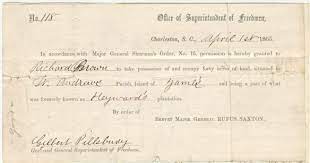 No. 118
Office of Superintendent of Freedmen,
Charleston, S. C., April 1st 1865.
In accordance with Major General Sherman's Order, No. 15, permission is hereby granted to
Richard Brown to take possession of and occupy forty acres of land, situated in
St. Andrews Parish, Island of James and being a part of what
was formerly known as Heyward's plantation.
By order of
BREVET MAJOR GENERAL RUFUS SAXTON,
Gilbert Pillsbury
General Superintendent of Freedmen.